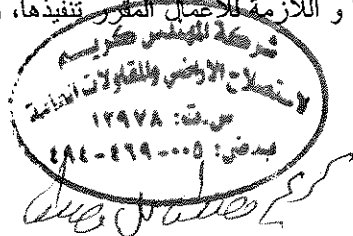 و اللازمة للأعمال المقرر تنفيذها،
شركة المهندس كريم
لاستصلاح الاراضي والمقاولات العامة
س.ت: ١٢٩٧٨
ب.ض: ٠٠٥-٤٦٩-٤٩٤